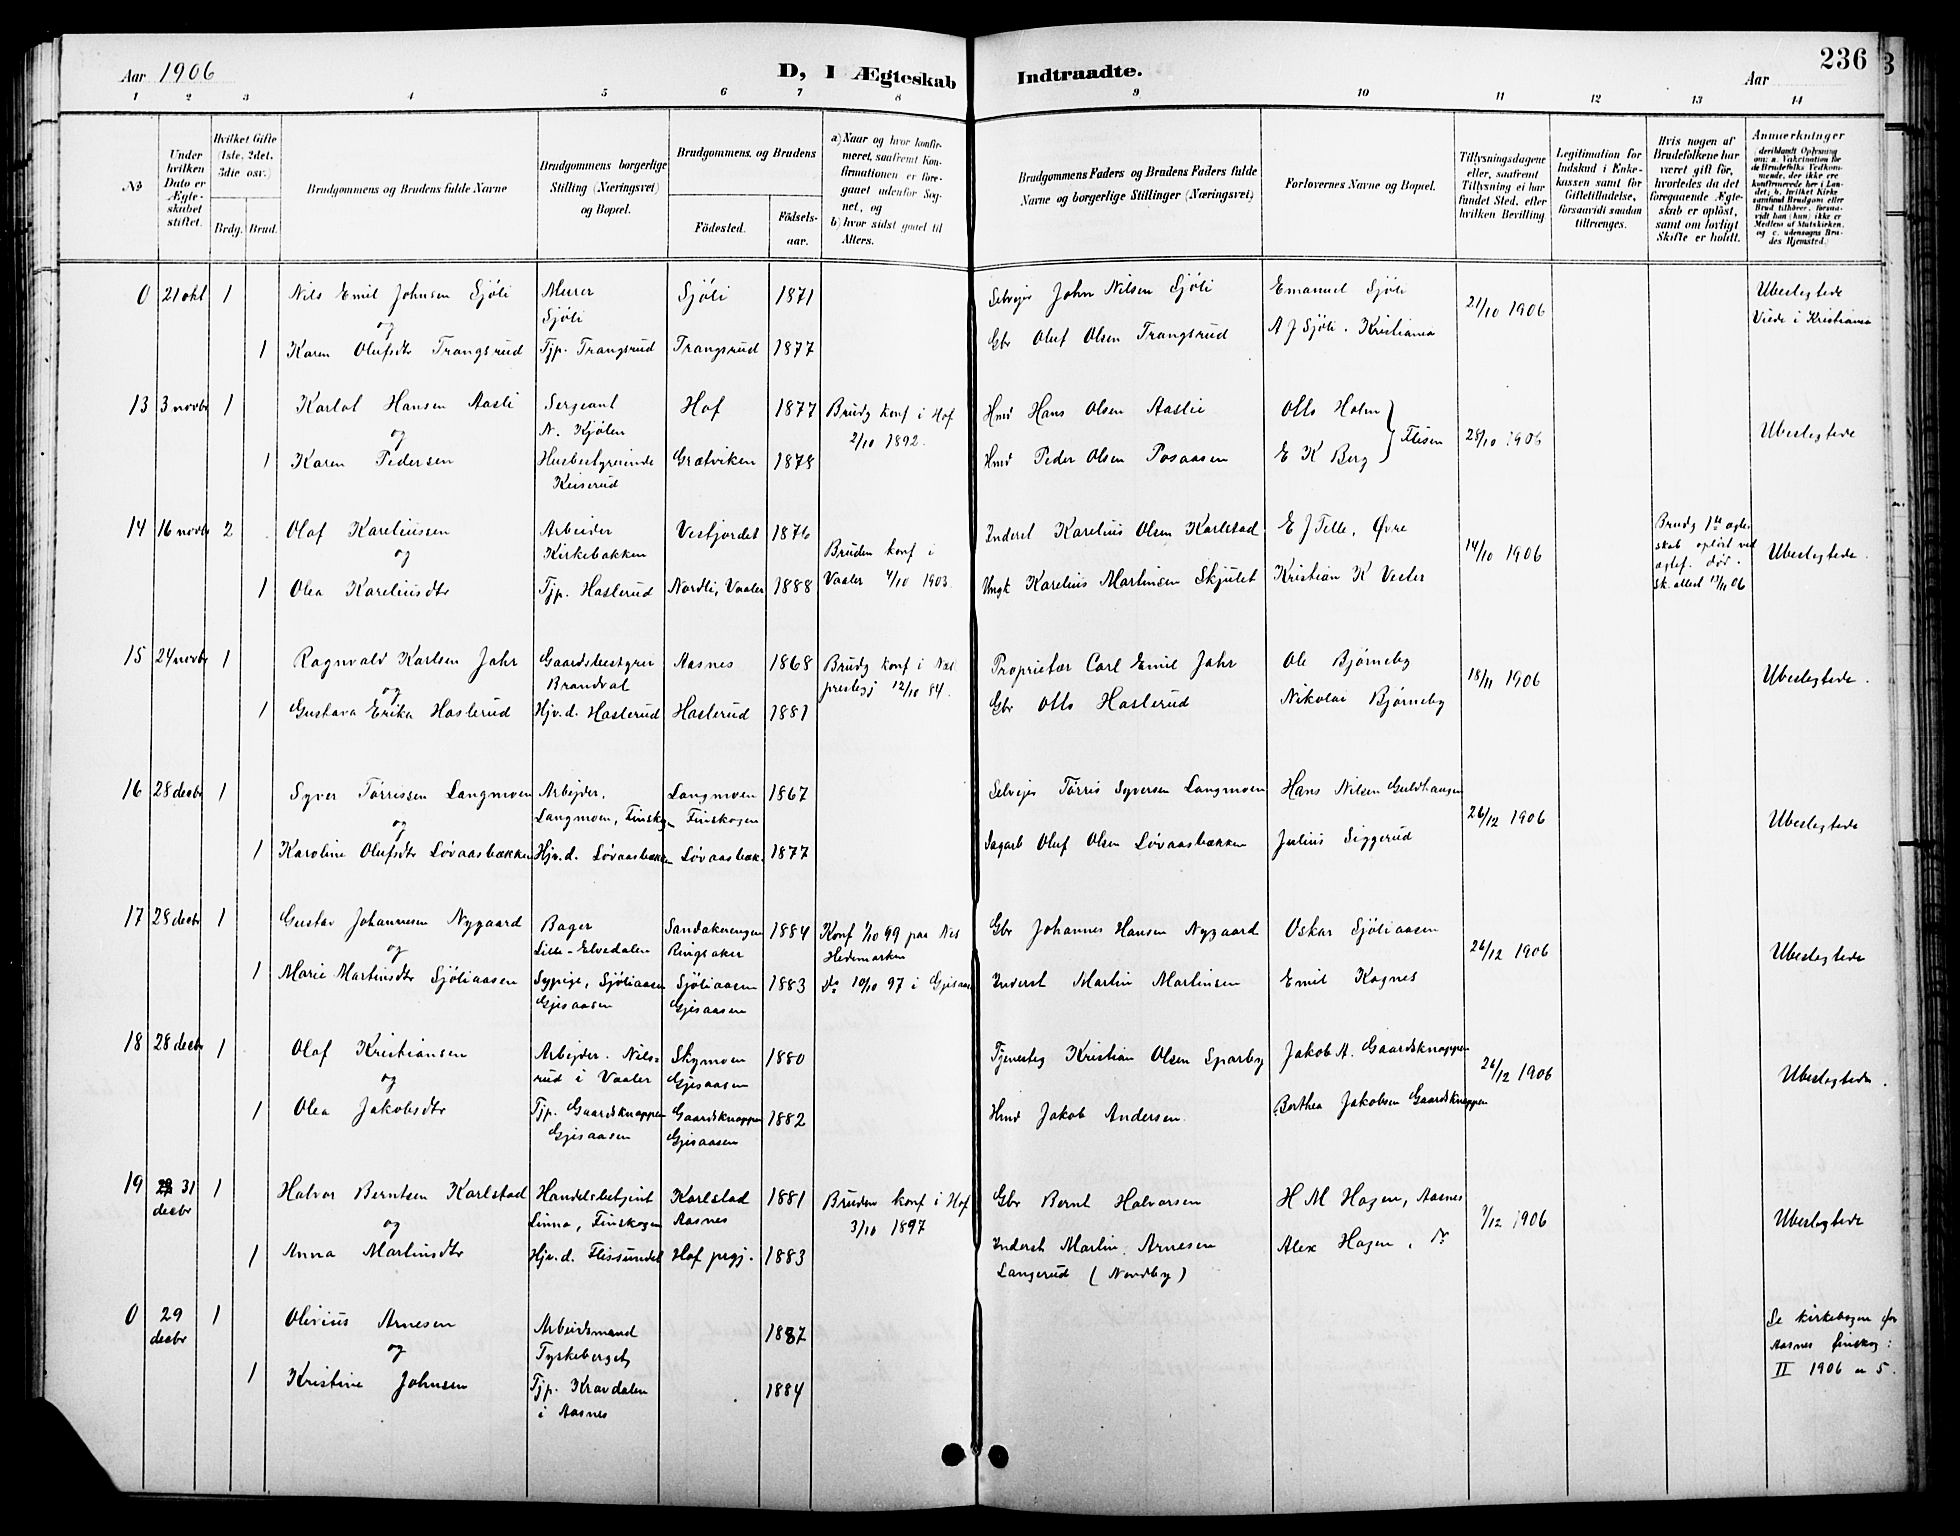 236
Aar 1906
D, I Ægteskab Indtraadte.
Aar
1 2 3 4 5 6 7 8 9 10 11 12 13 14
No
Under hvilken Dato er Ægteskabet stiftet.
Hvilket Gifte (1ste, 2det, 3die osv.)
Brdg. Brud.
Brudgommens og Brudens fulde Navne
Brudgommens borgerlige Stilling (Næringsvei) og Bopæl.
Brudgommens og Brudens
Födested.
Födselsaar.
a) Naar og hvor konfirmeret, saafremt Konfirmationen er foregaaet udenfor Sognet, og
b) hvor sidst gaaet til Alters.
Brudgommens Faders og Brudens Faders fulde Navne og borgerlige Stillinger (Næringsvei)
Forlovernes Navne og Bopæl.
Tillysningsdagene eller, saafremt Tillysning ei har fundet Sted, efter hvilken Bevilling
Legitimation for Indskud i Enkekassen samt for Giftetilladelse, forsaavidt saadan tiltrænges.
Hvis nogen af Brudefolkene har været gift för, hvorledes da det foregaaende Ægteskab er oplöst, samt om lovligt Skifte er holdt.
Anmerkninger (deriblandt Oplysning om: a. Vakcination for de Brudefolks Vedkommende, der ikke ere konfirmerede her i Landet, b. hvilket Kirkesamfund Brudgom eller Brud tilhörer, forsaavidt han (hun) ikke er Medlem af Statskirken, og c. udensogns Brudes Hjemsted.)
0 21 okt 1 Nils Emil Johnsen Sjöli Murer Sjöli 1871 Selveier John Nilsen Sjöli Emanuel Sjöli 21/10 1906 Ubeslegtede
og Sjöli Viede i Kristiania
1 Karen Olufsdtr Trangsrud Tjp. Trangsrud Trangsrud 1877 Gbr Oluf Olsen Trangsrud A J Sjöli. Kristiania
13 3 novbr 1 Karlot Hansen Aasli Sergeant Hof 1877 Brudg konf i Hof Hmd Hans Olsen Aaslie Otto Holm 28/10 1906 Ubeslegtede
og N. Kjølen 2/10 1892. Flisen
1 Karen Pedersen Husbestyrerinde Grætviken 1878 Hmd Peder Olsen Posaasen E K Berg
Keiserud
14 16 novbr 2 Olaf Kareliussen Arbeider Vestfjordet 1876 Inderst Karelius Olsen Karlstad E J Telle, Øvre 14/10 1906 Brudg 1ste ægteskab oplöst ved ægtef. död. Sk. attest 13/11 06 Ubeslegtede.
og Kirkebakken Bruden konf i
1 Olea Kareliusdtr Tjp. Haslerud Nordli, Vaaler 1888 Vaaler 4/10 1903. Ungk Karelius Martinsen Skjulet Kristian K Vester
15 24 novbr 1 Ragnvald Karlsen Jahr Gaardsbestyrer Aasnes 1868 Brudg konf i Nes Proprietær Carl Emil Jahr Ole Bjørneby 18/11 1906 Ubeslegtede.
og Brandval prestegj 12/10 84.
1 Gustava Erika Haslerud Hjv. d. Haslerud Haslerud 1881 Gbr Otto Haslerud Nikolai Bjørneby
16 28 decbr 1 Syver Tørrissen Langmoen Arbejder. Langmoen 1867 Selveier Tørris Syversen Langmoen Hans Nilsen Guldhaugen 26/12 1906 Ubeslegtede
og Langmoen, Finskogen Finskogen
1 Karoline Olufsdtr Løvaasbækken Hjv. d. Løvaasbækken Løvaasbæk. 1877 Sagarb Oluf Olsen Løvaasbækken Julius Siggerud
17 28 decbr 1 Gustav Johannesen Nygaard Bager Sandakerengen 1884 Konf 1/10 99 paa Nes Gbr Johannes Hansen Nygaard Oskar Sjöliaasen 26/12 1906 Ubeslegtede
og Lille-Elvedalen Ringsaker Hedemarken
1 Marie Martinsdtr Sjöliaasen Sypige, Sjöliaasen Sjöliaasen 1883 do 10/10 97 i Gjesaasen Inderst Martin Martinsen Emil Kagnes
Gjesaasen Gjesaasen
18 28 decbr 1 Olaf Kristiansen Arbejder. Nils- Skymoen 1880 Tjenesteg Kristian Olsen Sparby Jakob A. Gaardsknappen 26/12 1906 Ubeslegtede.
og rud i Vaaler Gjesaasen
1 Olea Jakobsdtr Tjp. Gaardsknappen Gaardsknappen 1882 Hmd Jakob Andersen. Berthea Jakobsen Gaardsknappen
Gjesaasen Gjesaasen
19 31 decbr 1 Halvor Berntsen Karlstad Handelsbetjent Karlstad 1881 Bruden konf i Hof Gbr Bernt Halvorsen H M Hagen, Aasnes 9/12 1906 Ubeslegtede
og Linna, Finskogen Aasnes 3/10 1897
1 Anna Martinsdtr Hjv. d. Flissundet Hof prgj. 1883 Inderst Martin Arnesen Alex Hagen, do
Langerud (Nordby)
0 29 decbr 1 Olivius Arnesen Arbeidsmand 1887 Se kirkebogen for
og Tyskeberget, Aasnes finskog:
1 Kristine Johnsen Tjp. Kravdalen 1884 II 1906 n 5.
i Aasnes